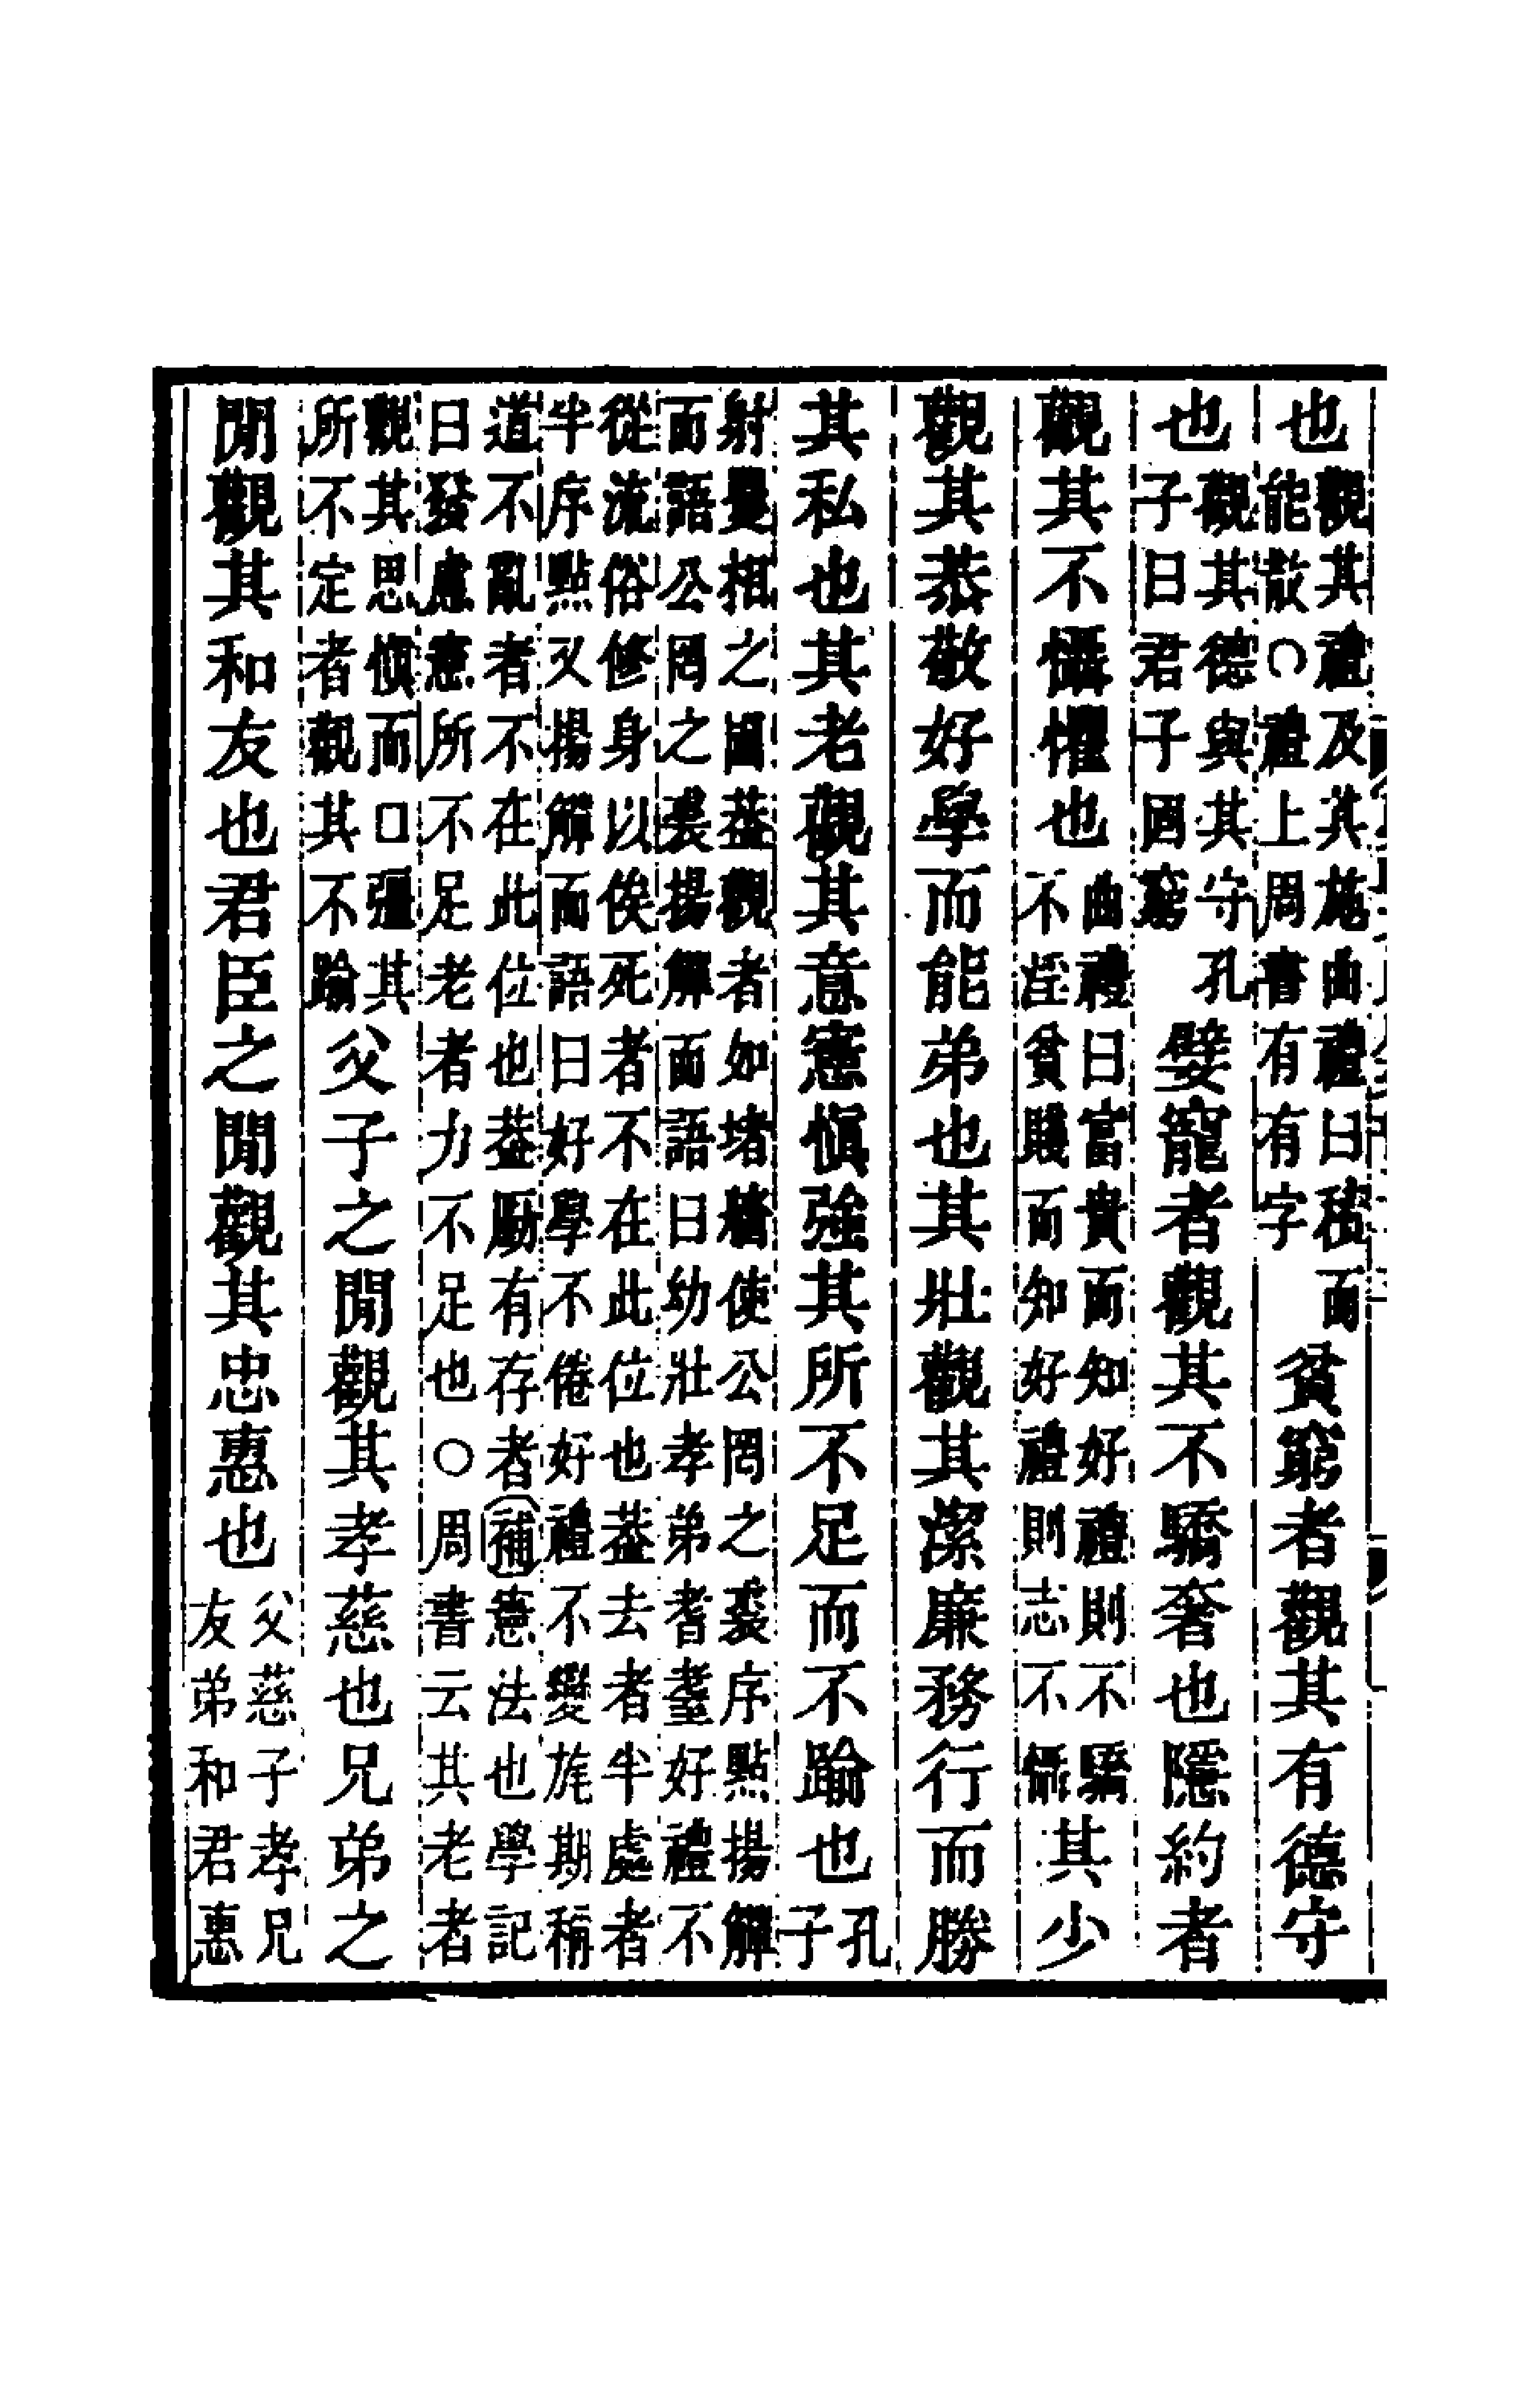 也觀其禮及其施曲禮曰積而能散○禮上周書有有字貧窮者觀其有德守
也觀其德與其守孔子曰君子固窮嬖寵者觀其不驕奢也隱約者
觀其不懾懼也曲禮曰富貴而知好禮則不驕不淫貧賤而知好禮則志不懾其少
觀其恭敬好學而能弟也其壯觀其潔廉務行而勝
其私也其老觀其意憲愼強其所不足而不踰也孔子
射矍相之圃蓋觀者如堵牆使公罔之裘序點揚觶
而語公罔之裘揚觶而語曰幼壯孝弟耆耋好禮不
從流俗修身以俟死者不在此位也蓋去者半處者
半序點又揚觶而語曰好學不倦好禮不變旄期稱
道不亂者不在此位也蓋勵有存者補憲法也學記
曰發慮憲所不足老者力不足也○周書云其老者
觀其思愼而口彊其所不定者觀其不踰父子之閒觀其孝慈也兄弟之
閒觀其和友也君臣之閒觀其忠惠也父慈子孝兄友弟和君惠